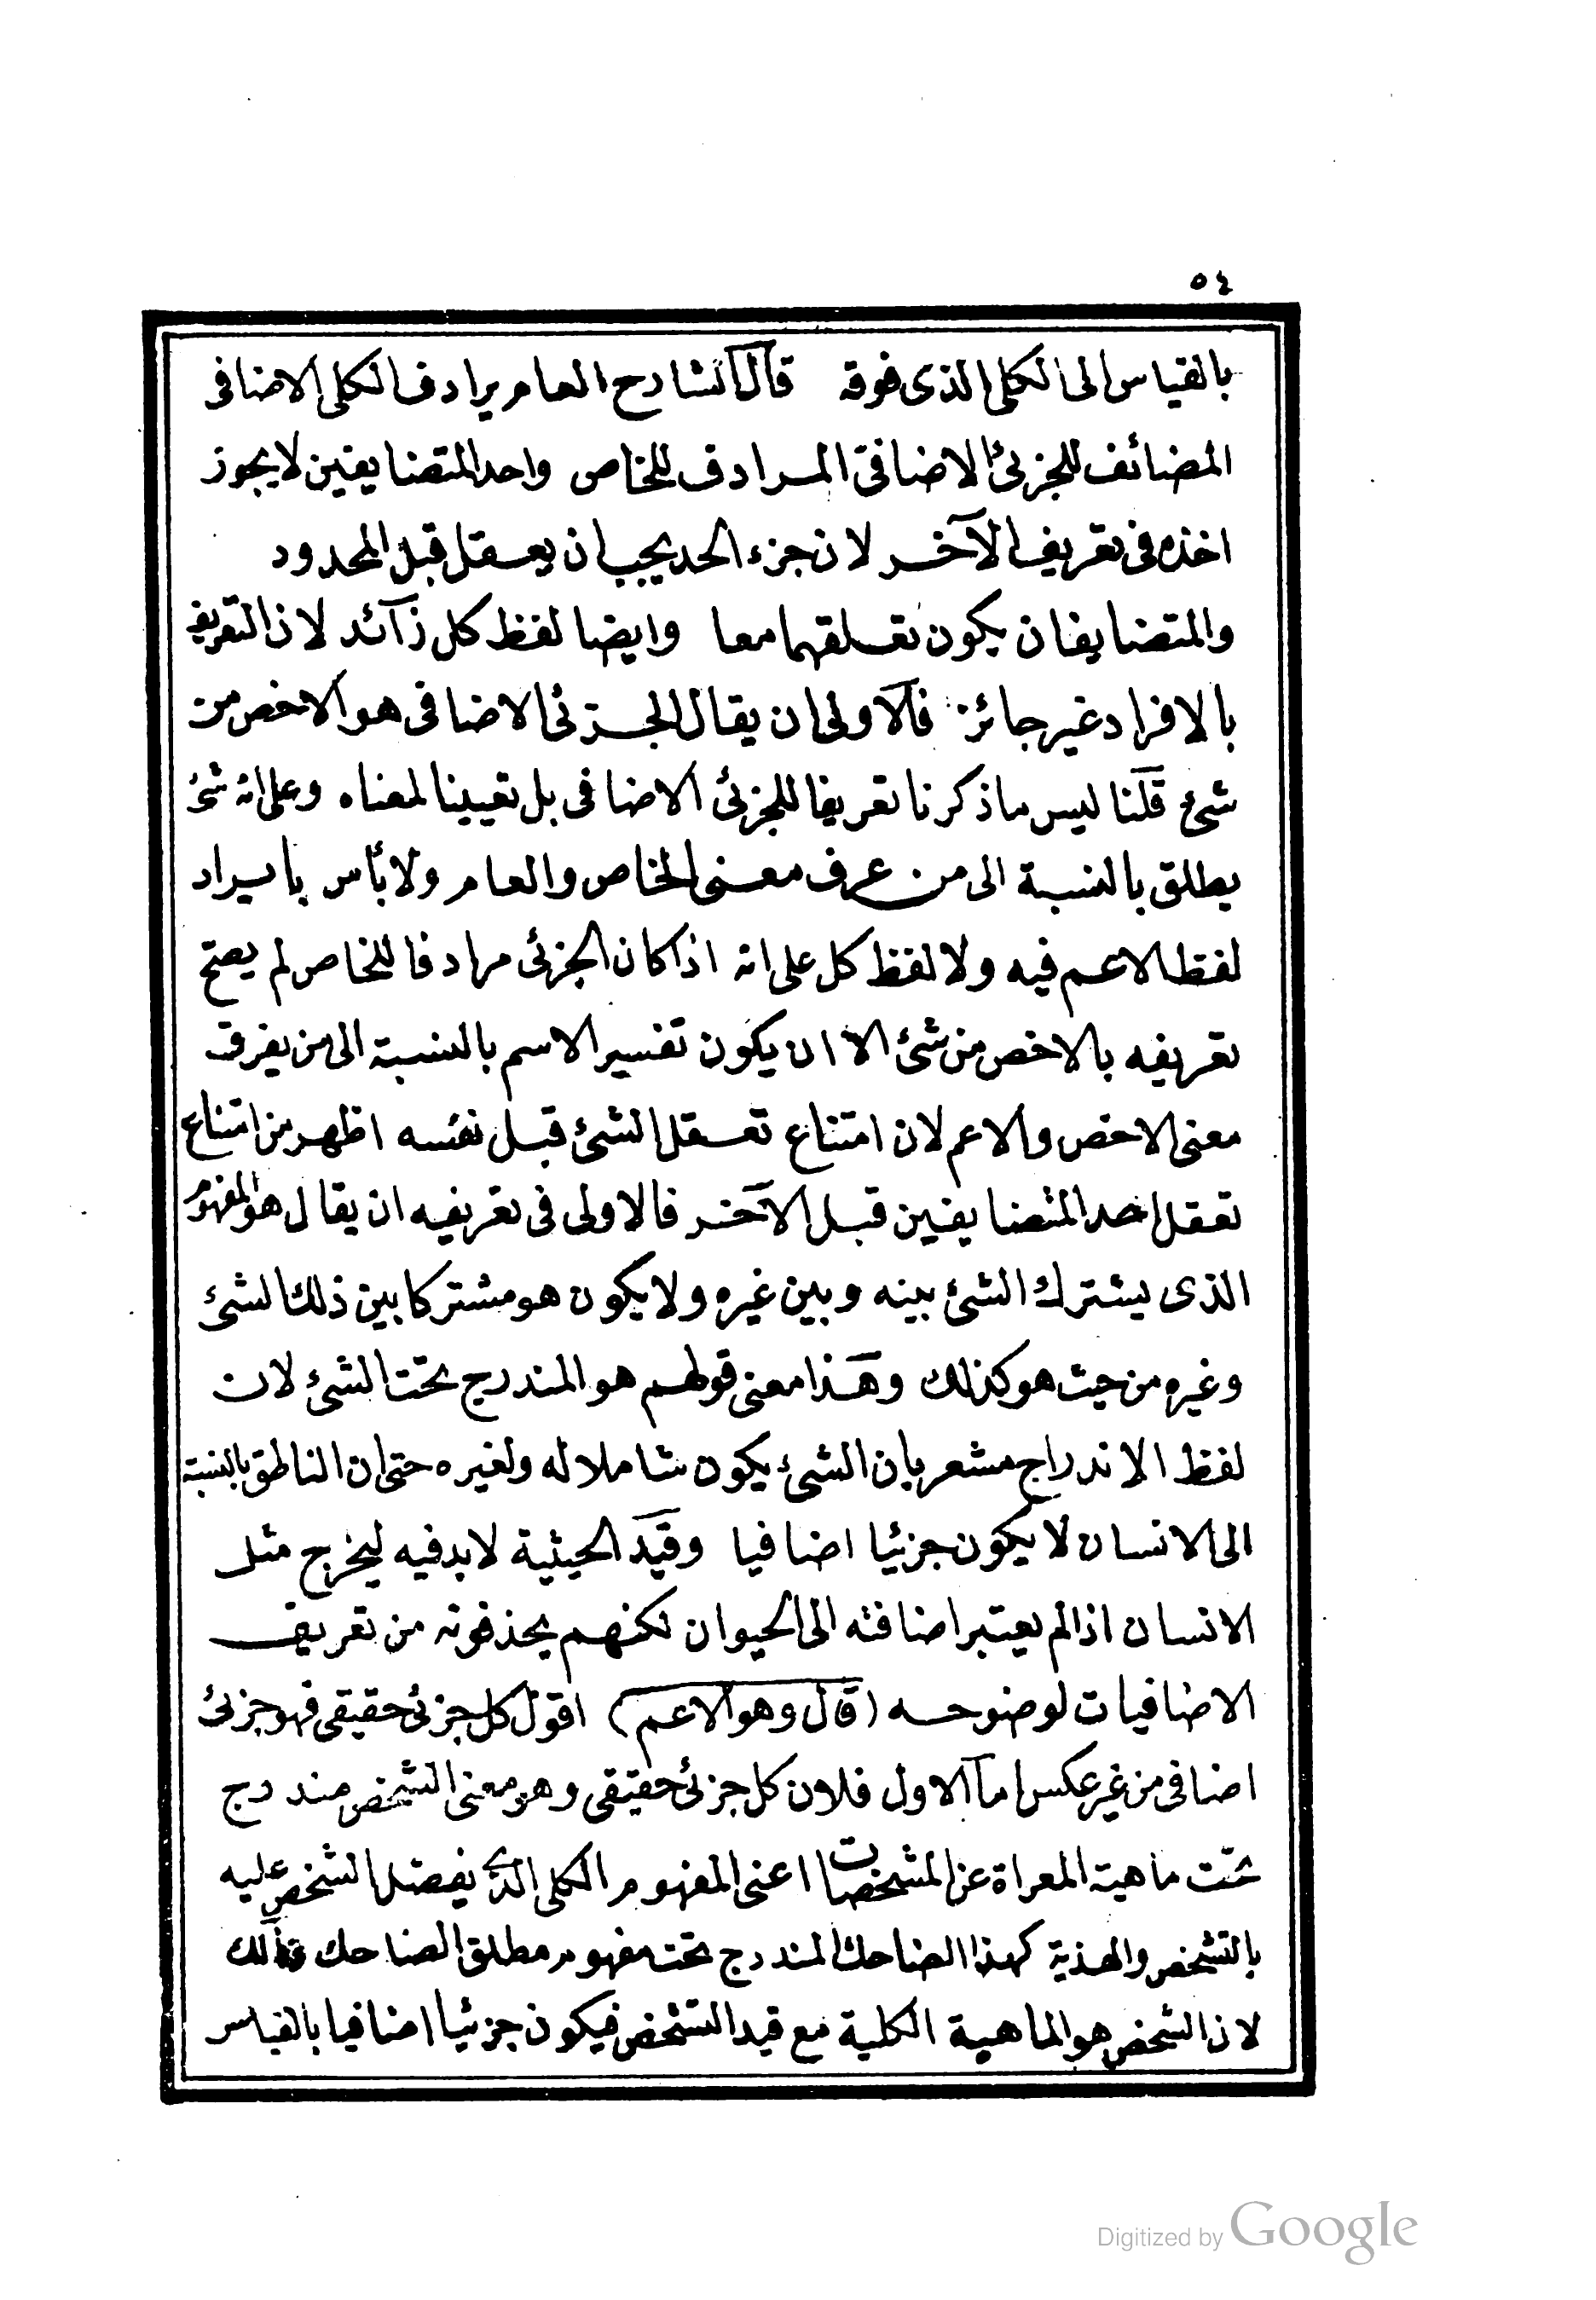 ٥٤
بالقياس الى الكلى الذى فوقه قال الشارح العام يرادف الكلى الاضافى
المضائف للجزئ الاضافى المرادف للخاص واحد المتضايفين لا يجوز
اخذه فى تعريف الآخر لان جزء الحد يجب ان يعقل قبل المحدود
والمتضايفان يكون تعلقهما معا وايضا لفظ كل زآئد لان التعريف
بالافراد غير جائز فالاولى ان يقال الجزئى الاضافى هو الاخص من
شئ قلنا ليس ماذكرنا تعريفا للجزئى الاضافى بل تعيينا لمعناه وعلى انه شئ
يطلق بالنسبة الى من عرف معنى الخاص والعام ولا بأس بايراد
لفظ الاعم فيه ولا لفظ كل على انه اذا كان الجزئى مرادفا للخاص لم يصح
تعريفه بالاخص من شئ الا ان يكون تفسير الاسم بالنسبة الى من يعرف
معنى الاخص والاعم لان امتناع تعقل الشئ قبل نفسه اظهر من امتناع
تعقل احد المتضايفين قبل الآخر فالاولى فى تعريفه ان يقال هو المفهوم
الذى يشترك الشئ بينه وبين غيره ولا يكون هو مشتركا بين ذلك الشئ
وغيره من حيث هو كذلك وهذا معنى قولهم هو المندرج تحت الشئ لان
لفظ الاندراج مشعر بان الشئ يكون شاملا له ولغيره حتى ان الناطق بالنسبة
الى الانسان لا يكون جزئيا اضافيا وقيد الحيثية لابد فيه ليخرج مثل
الانسان اذا لم يعتبر اضافته الى الحيوان لكنهم يحذفونه من تعريف
الاضافيات لوضوحه (قال وهو الاعم) اقول كل جزئى حقيقى فهو جزئى
اضافى من غير عكس اما الاول فلان كل جزئى حقيقى وهو معنى الشخص مندرج
تحت ماهية المعراة عن المشخصات اعنى المفهوم الكلى الذى يفضل الشخص عليه
بالتشخص والهذية كهذا الضاحك المندرج تحت مفهوم مطلق الضاحك وذلك
لان الشخص هو الماهية الكلية مع قيد التشخص فيكون جزئيا اضافيا بالقياس
Digitized by Google